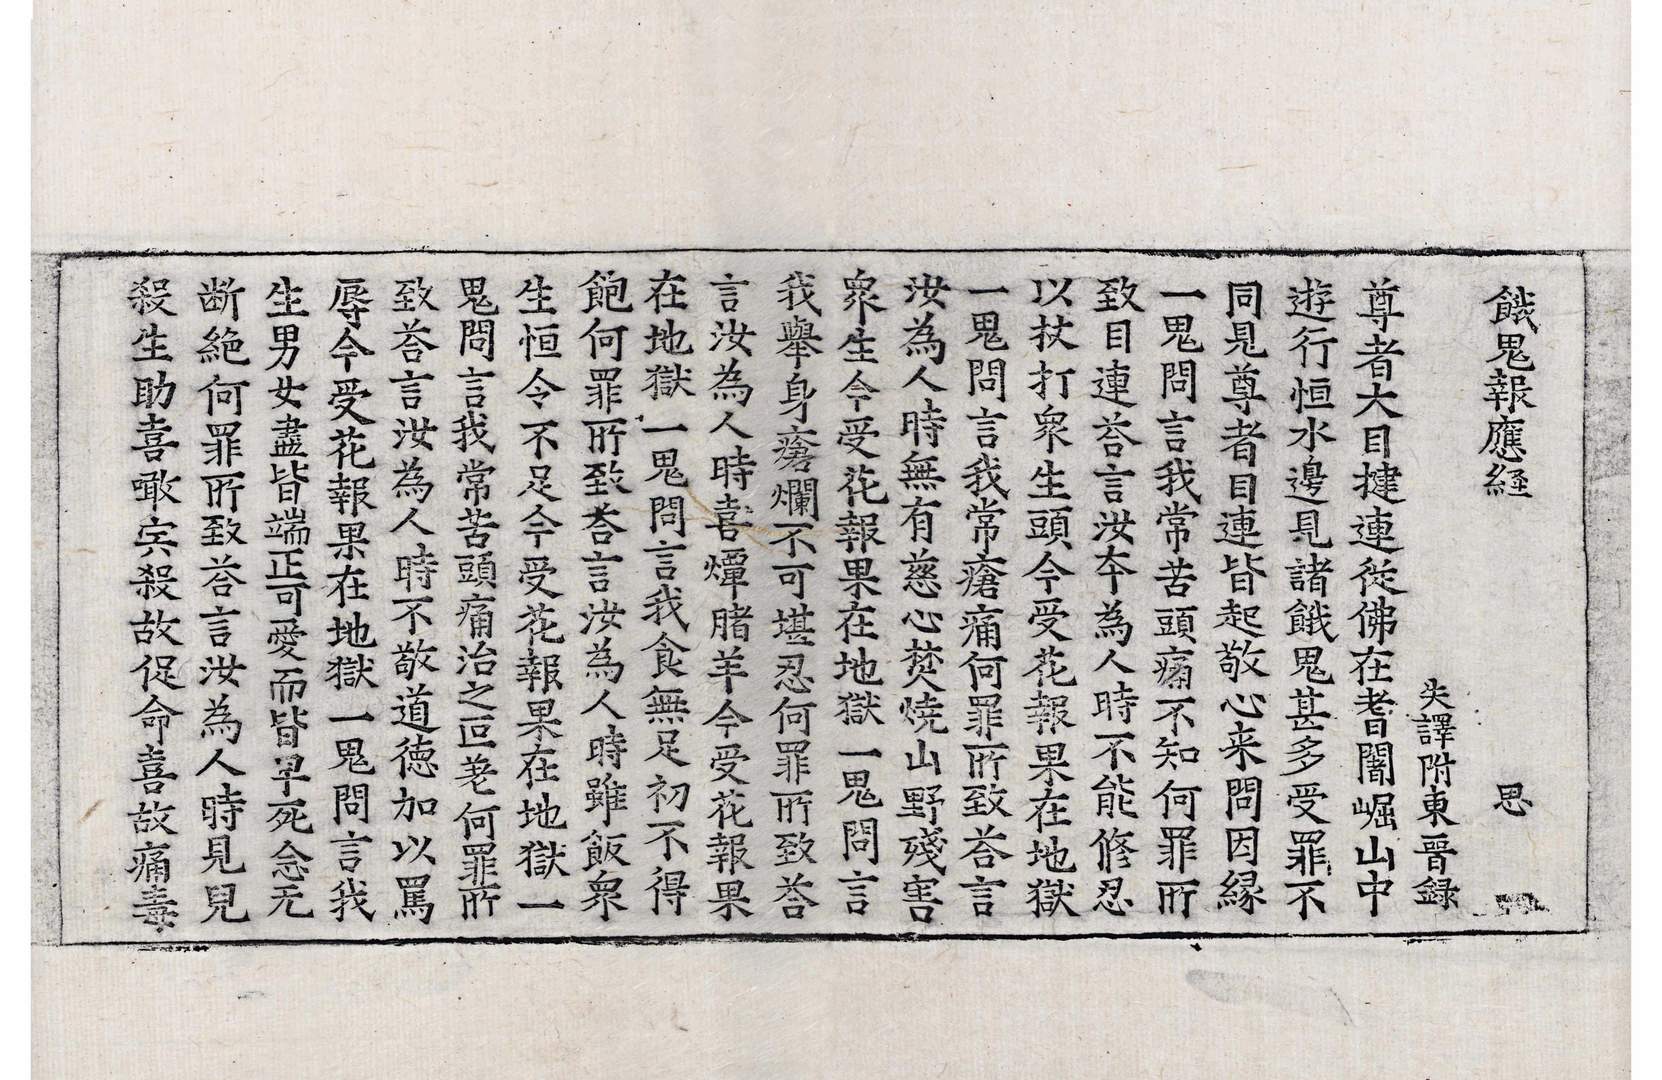 餓鬼報應経 思
失譯附東晉録
尊者大目揵連従佛在耆闍崛山中
遊行恒水邊見諸餓鬼甚多受罪不
同見尊者目連皆起敬心来問因縁
一鬼問言我常苦頭痛不知何罪所
致目連荅言汝夲為人時不能修忍
以杖打衆生頭今受花報果在地獄
一鬼問言我常瘡痛何罪所致荅言
汝為人時無有慈心焚焼山野殘害
衆生今受花報果在地獄一鬼問言
我舉身瘡爛不可堪忍何罪所致荅
言汝為人時喜燂腤羊今受花報果
在地獄一鬼問言我食無足初不得
飽何罪所致荅言汝為人時雖飯衆
生恒令不足今受花報果在地獄一
鬼問言我常苦頭痛治之叵差何罪所
致荅言汝為人時不敬道德加以罵
辱今受花報果在地獄一鬼問言我
生男女盡皆端正可愛而皆早死念无
断絶何罪所致荅言汝為人時見兒
殺生助喜噉宍殺故促命喜故痛毒